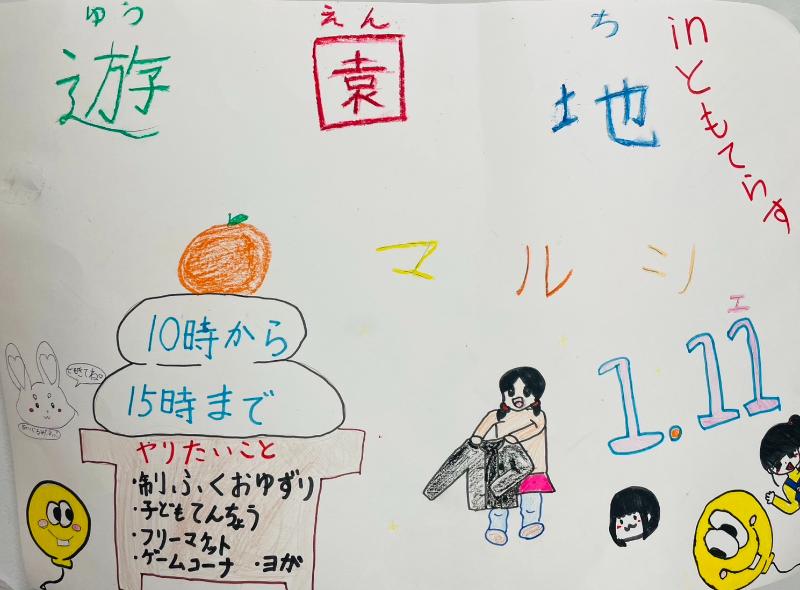 ゆう えん ち
遊 園 地
inともてらす
マルシェ
1.11
10時から
15時まで
やりたいこと
・制ふくおゆずり
・子どもてんちょう
・フリーマケット
・ゲームコーナ ・ヨガ
きてね♡